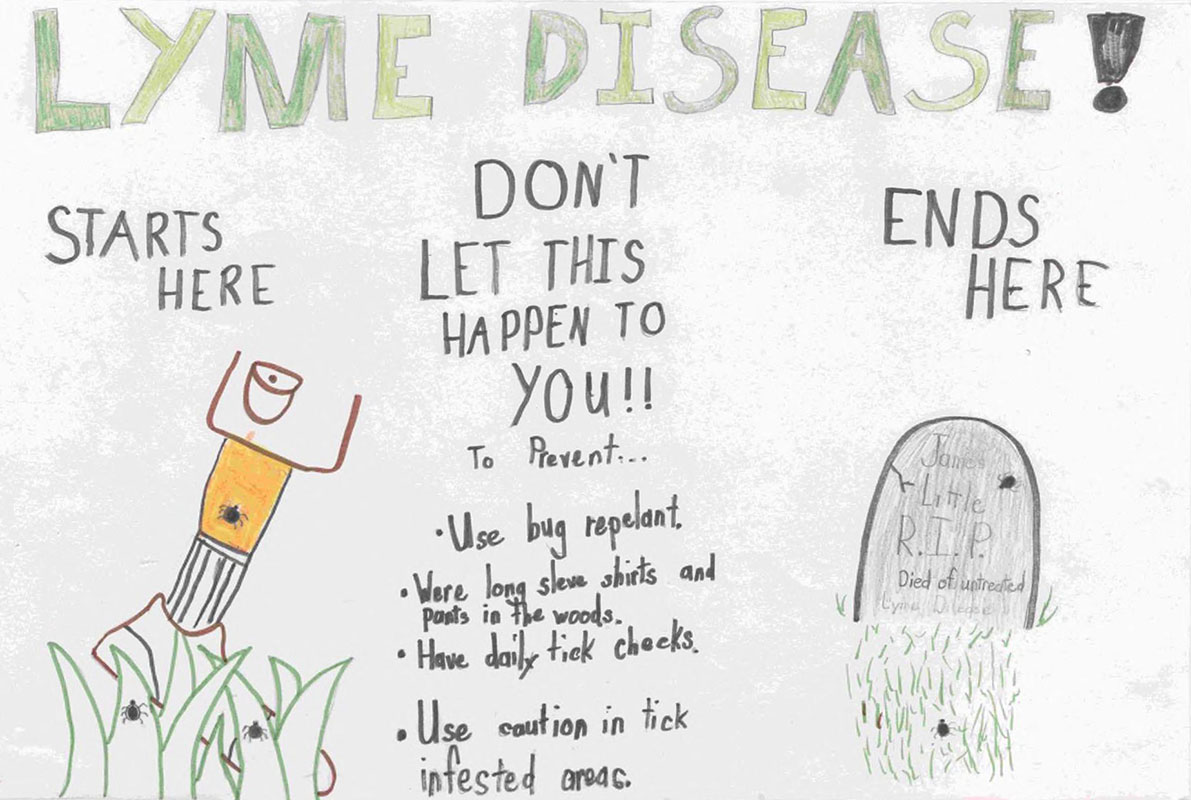 LYME DISEASE!
STARTS
HERE
DON'T
LET THIS
HAPPEN TO
YOU!!
To Prevent...
• Use bug repelant.
• Were long sleve shirts and
pants in the woods.
• Have daily tick checks.
• Use caution in tick
infested areas.
ENDS
HERE
James
Little
R.I.P.
Died of untreated
Lyme Disease